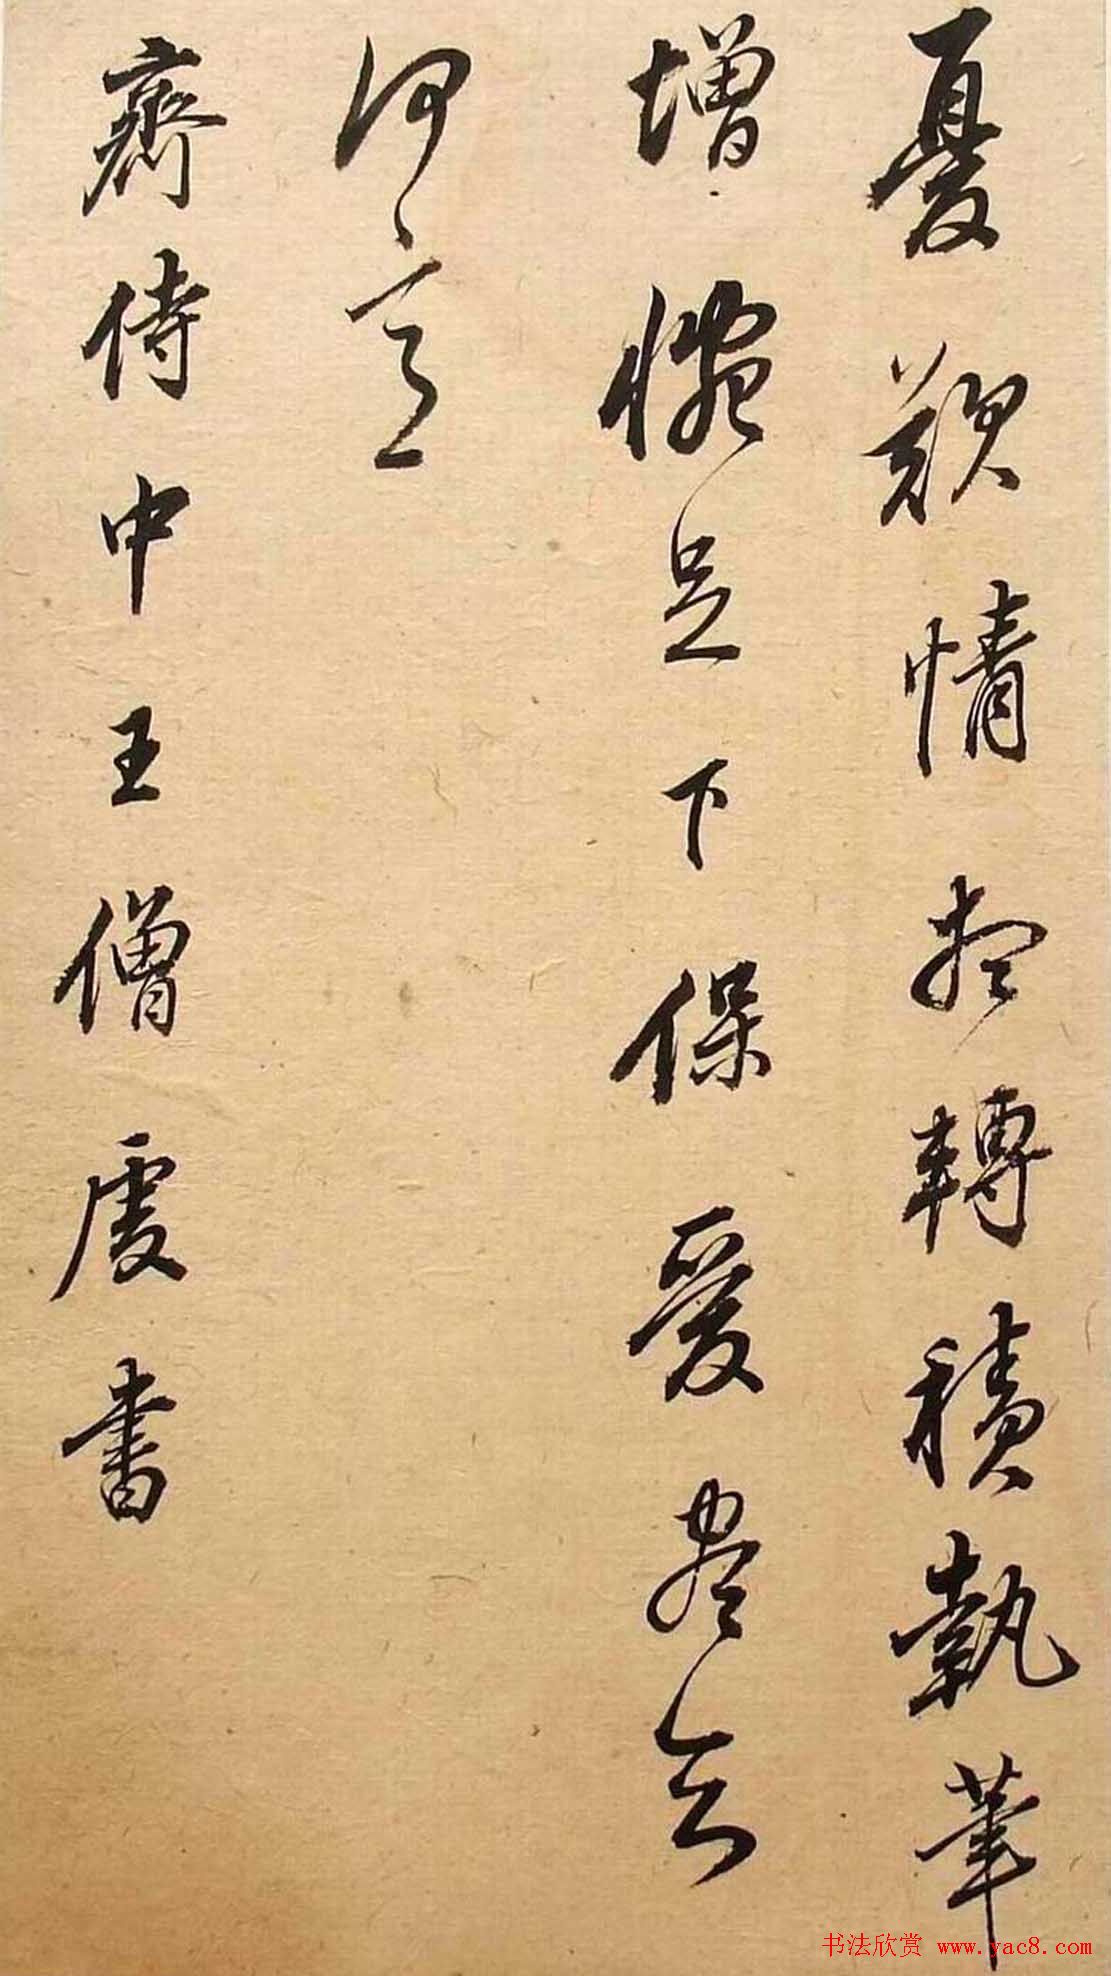 憂歎情想轉積執筆
增惋足下保愛盡
何言
齊侍中王僧虔書
书法欣赏 www.yac8.com